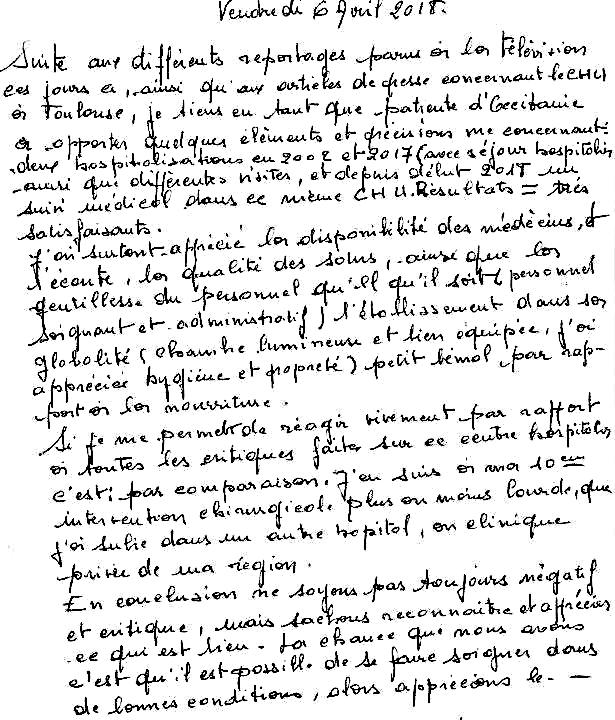 Vendredi 6 Avril 2018.
Suite aux différents reportages parus à la télévision
ces jours ci, ainsi qu'aux articles de presse concernant le CHU
à Toulouse, je tiens en tant que patiente d'Occitanie
à apporter quelques éléments et précisions me concernant:
deux hospitalisations en 2002 et 2017 (avec séjour hospitalier
ainsi que différentes visites, et depuis début 2018 un
suivi médical dans ce même CHU. Résultats = très
satisfaisants.
J'ai surtout apprécié la disponibilité des médecins, et
l'écoute, la qualité des soins, ainsi que la
gentillesse du personnel qu'ell qu'il soit (personnel
soignant et administratif) l'établissement dans sa
globalité (chambre lumineuse et bien équipée, j'ai
appréciée hygiène et propreté) petit bémol par rap-
port à la nourriture.
Si je me permet de réagir vivement par rapport
à toutes les critiques faites sur ce centre hospitalier
c'est: par comparaison. J'en suis à ma 10 em
intervention chirurgicale plus ou moins lourde, que
j'ai subie dans un autre hopital, ou clinique
privée de ma région.
En conclusion ne soyons pas toujours négatif
et critique, mais sachons reconnaitre et apprécier
ce qui est bien. La chance que nous avons
c'est qu'il est possible de se faire soigner dans
de bonnes conditions, alors apprécions le. -